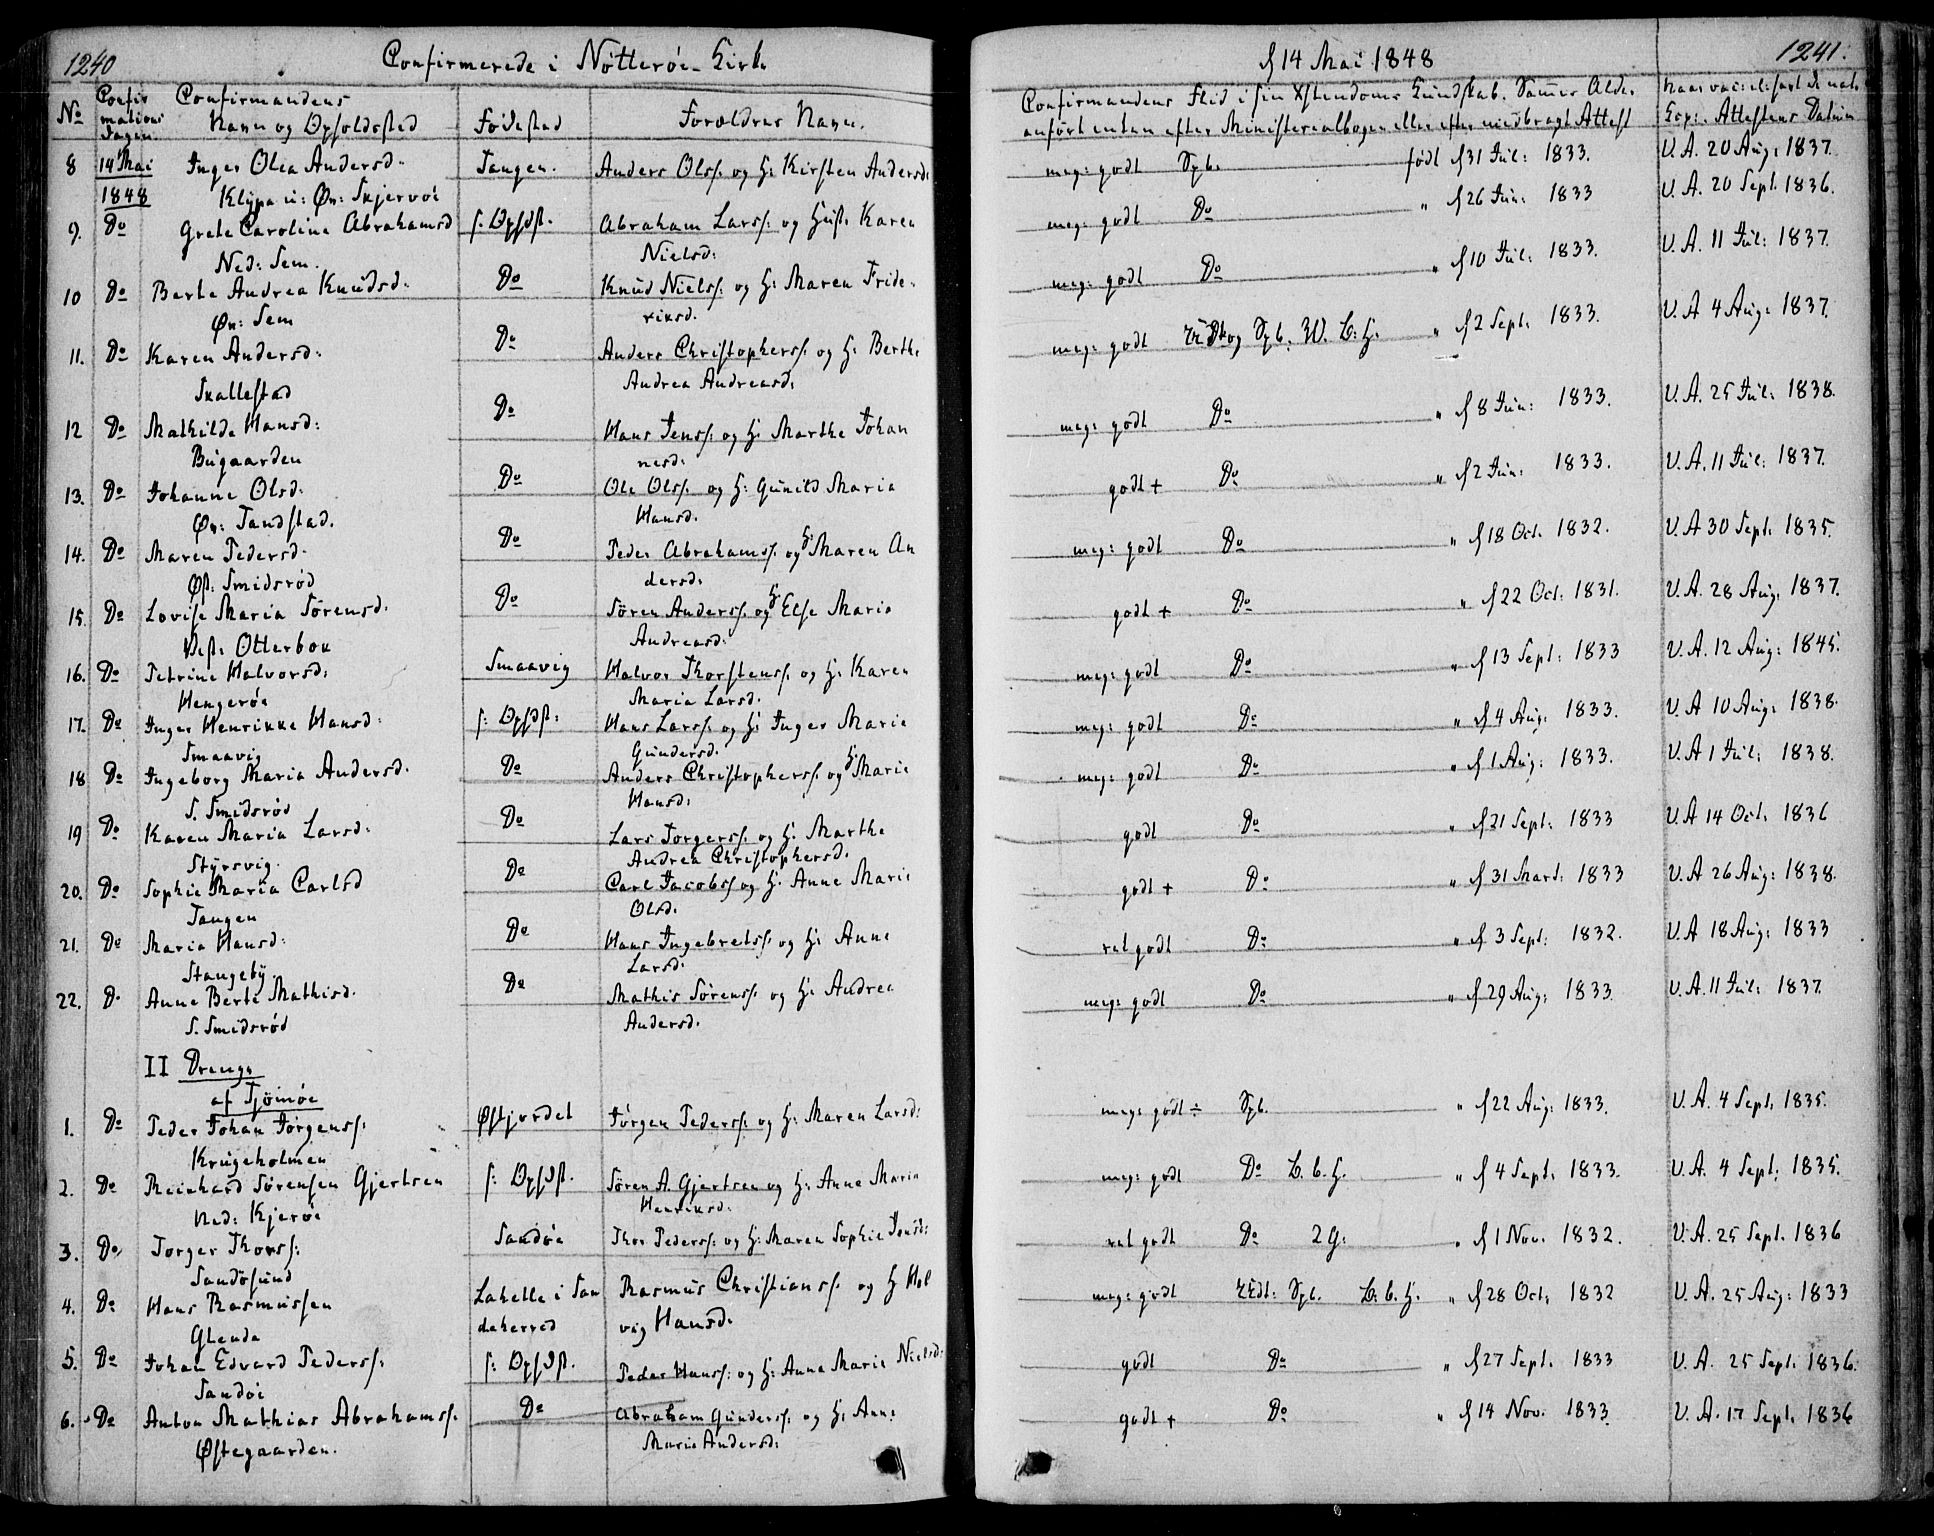 1240 Confirmerede i Nötteröe Kirke
No Confirmations Dagen Confirmandens Navn og Opholdssted Födested Forældres Navn.
8 14 Mai 1848 Inger Olea Andersd. Tangen. Anders Olss. og H: Kirsten Andersd:
Klÿpa i: Øv: Skjervöe
9. Do Grete Caroline Abrahamsd s. Opsdst. Abraham Larss: og Hust. Karen
Ned: Sem. Nielsd:
10 Do Berte Andrea Knudsd. Do Knud Nielss: og H: Maren Fride
Øv: Sem riksd.
11. Do Karen Andersd: Do Anders Christophers: og H: Berthe
Skallestad Andrea Andreasd:
12 Do Mathilde Hansd: Do Hans Jenss: og H: Marthe Johan
Bugaarden nesd:
13. Do Johanne Olsd: Do Ole Olss. og H: Gunild Maria
Øv: Tandstad. Hansd.
14. Do Maren Pedersd. Do Peder Abrahamss. og H: Maren An
Øst: Smidsröd dersd:
15. Do Lovise Maria Sörensd. Do Sören Anderss. og H: Else Maria
Vest: Otterbek Andreasd:
16. Do Petrine Halvorsd: Smaavig Halvor Thorstenss. og H: Karen
Hengeröe Maria Larsd.
17. Do Inger Henrikke Hansd: s: Opsdst: Hans Larss: og H: Inger Marie
Smaavig Gundersd.
18 Do Ingeborg Maria Andersd. Do Anders Christophers: og H: Marie
S. Smidsröd Hansd:
19 Do Karen Maria Larsd: Do Lars Jörgerss. og H: Marthe
Styrsvig. Andrea Christophersd.
20. Do Sophie Maria Carlsd Do Carl Jacobss og H. Anne Marie
Tangen Olsd.
21. Do Maria Hansd: Do Hans Ingebretss: og H: Anne
Stangebÿ Larsd:
22. Do Anne Berte Mathisd. Do Mathis Sörenss: og H: Andrea
S. Smidsröd Andersd.
II Drenge
af Tjömöe
1. Do Peder Johan Jörgenss: Østjordet Jörgen Pederss: og H: Maren Larsd:
Krugeholmen
2. Do Reinhard Sörensen Gjertsen s: Opsdst. Sören A. Gjertsen og H: Anne Maria
Ned: Kjeröe Henriksd:
3. Do Torger Thorss: Sandöe Thor Pederss: og H: Maren Sophie Jensd:
Sandösund
4. Do Hans Rasmussen Lahelle i San Rasmus Christianss. og H Hel
Glenda deherred vig Hansd.
5. Do Johan Edvard Pederss: s: Opsdst. Peder Hanss: og H: Anne Marie Nielsd:
Sandöe
6. Do Anton Mathias Abrahamss. Do Abraham Gunderss. og H: Anne
Østegaarden. Marie Andersd:
d 14 Mai 1848 1241.
Confirmandens Flid i sin Xstendoms Kundskab. Sames Alder
anfört enten efter Ministerialbogen eller efter medbragt Attest Naar vaccineret Attestens Datum
meg: godt Spb. födt d 31 Jul: 1833. V. A. 20 Aug: 1837.
meg: godt Do " d 26 Jun: 1833 V. A. 20 Sept. 1836.
meg: godt Do " d 10 Jul: 1833. V. A. 11 Jul: 1837.
meg: godt og Spb. W. L. H. " d 2 Sept. 1833. V. A 4 Aug: 1837.
meg: godt Do " d 8 Jun: 1833. V. A. 25 Jul: 1838.
godt + Do " d 2 Jun: 1833. V. A. 11 Jul: 1837.
meg: godt Do " d 18 Oct. 1832. V. A 30 Sept. 1835.
godt + Do " d 22 Oct: 1831. V. A. 28 Aug: 1837.
meg: godt Do " d 13 Sept: 1833 V. A. 12 Aug: 1845.
meg: godt Do " d 4 Aug: 1833. V. A 10 Aug: 1838.
meg: godt Do " d 1 Aug: 1833. V. A 1 Jul: 1838.
godt Do " d 21 Sept: 1833 V. A 14 Oct. 1836
godt + Do " d 31 Mart. 1833 V. A 26 Aug: 1838.
ret godt Do " d 3 Sept: 1832. V. A 18 Aug: 1833
meg: godt Do " d 29 Aug: 1833. V. A. 11 Jul: 1837.
meg: godt ÷ Spb. " d 22 Aug: 1833. V. A. 4 Sept. 1835.
meg: godt Do L. b. H. " d 4 Sept: 1833. V. A. 4 Sept. 1835.
ret godt Do 2 G: " d 1 Nov. 1832. V. A. 25 Sept. 1836
meg: godt Spb. L. b. H. " d 28 Oct: 1832 V. A. 25 Aug: 1833
godt Do " d 27 Sept. 1833 V. A. 25 Sept. 1836.
godt + Do " d 14 Nov. 1833. V. A. 17 Sept. 1836